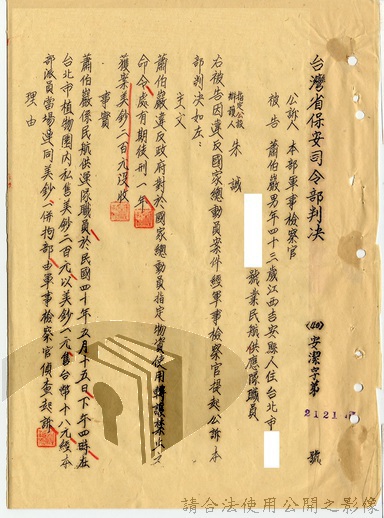 台灣省保安司令部判決
(40)安潔字第2121號
公訴人 本部軍事檢察官
被告 蕭伯巖 男年四十三歲江西吉安縣人住台北市
職業民航供應隊職員
指定公設辯護人 朱誠
右被告因違反國家總動員案件經軍事檢察官提起公訴本
部判決如左:
主文
蕭伯巖違反政府對於國家總動員指定物資使用轉讓禁止之
命令處有期徒刑一年
獲案美鈔二百元沒收
事實
蕭伯巖係民航供運隊職員於民國四十年五月十五日下午四時在
台北市植物園內私售美鈔二百元以美鈔一元售台幣十八元經本
部派員當場連同美鈔一併拘部由軍事檢察官偵查起訴
理由
請合法使用公開之影像